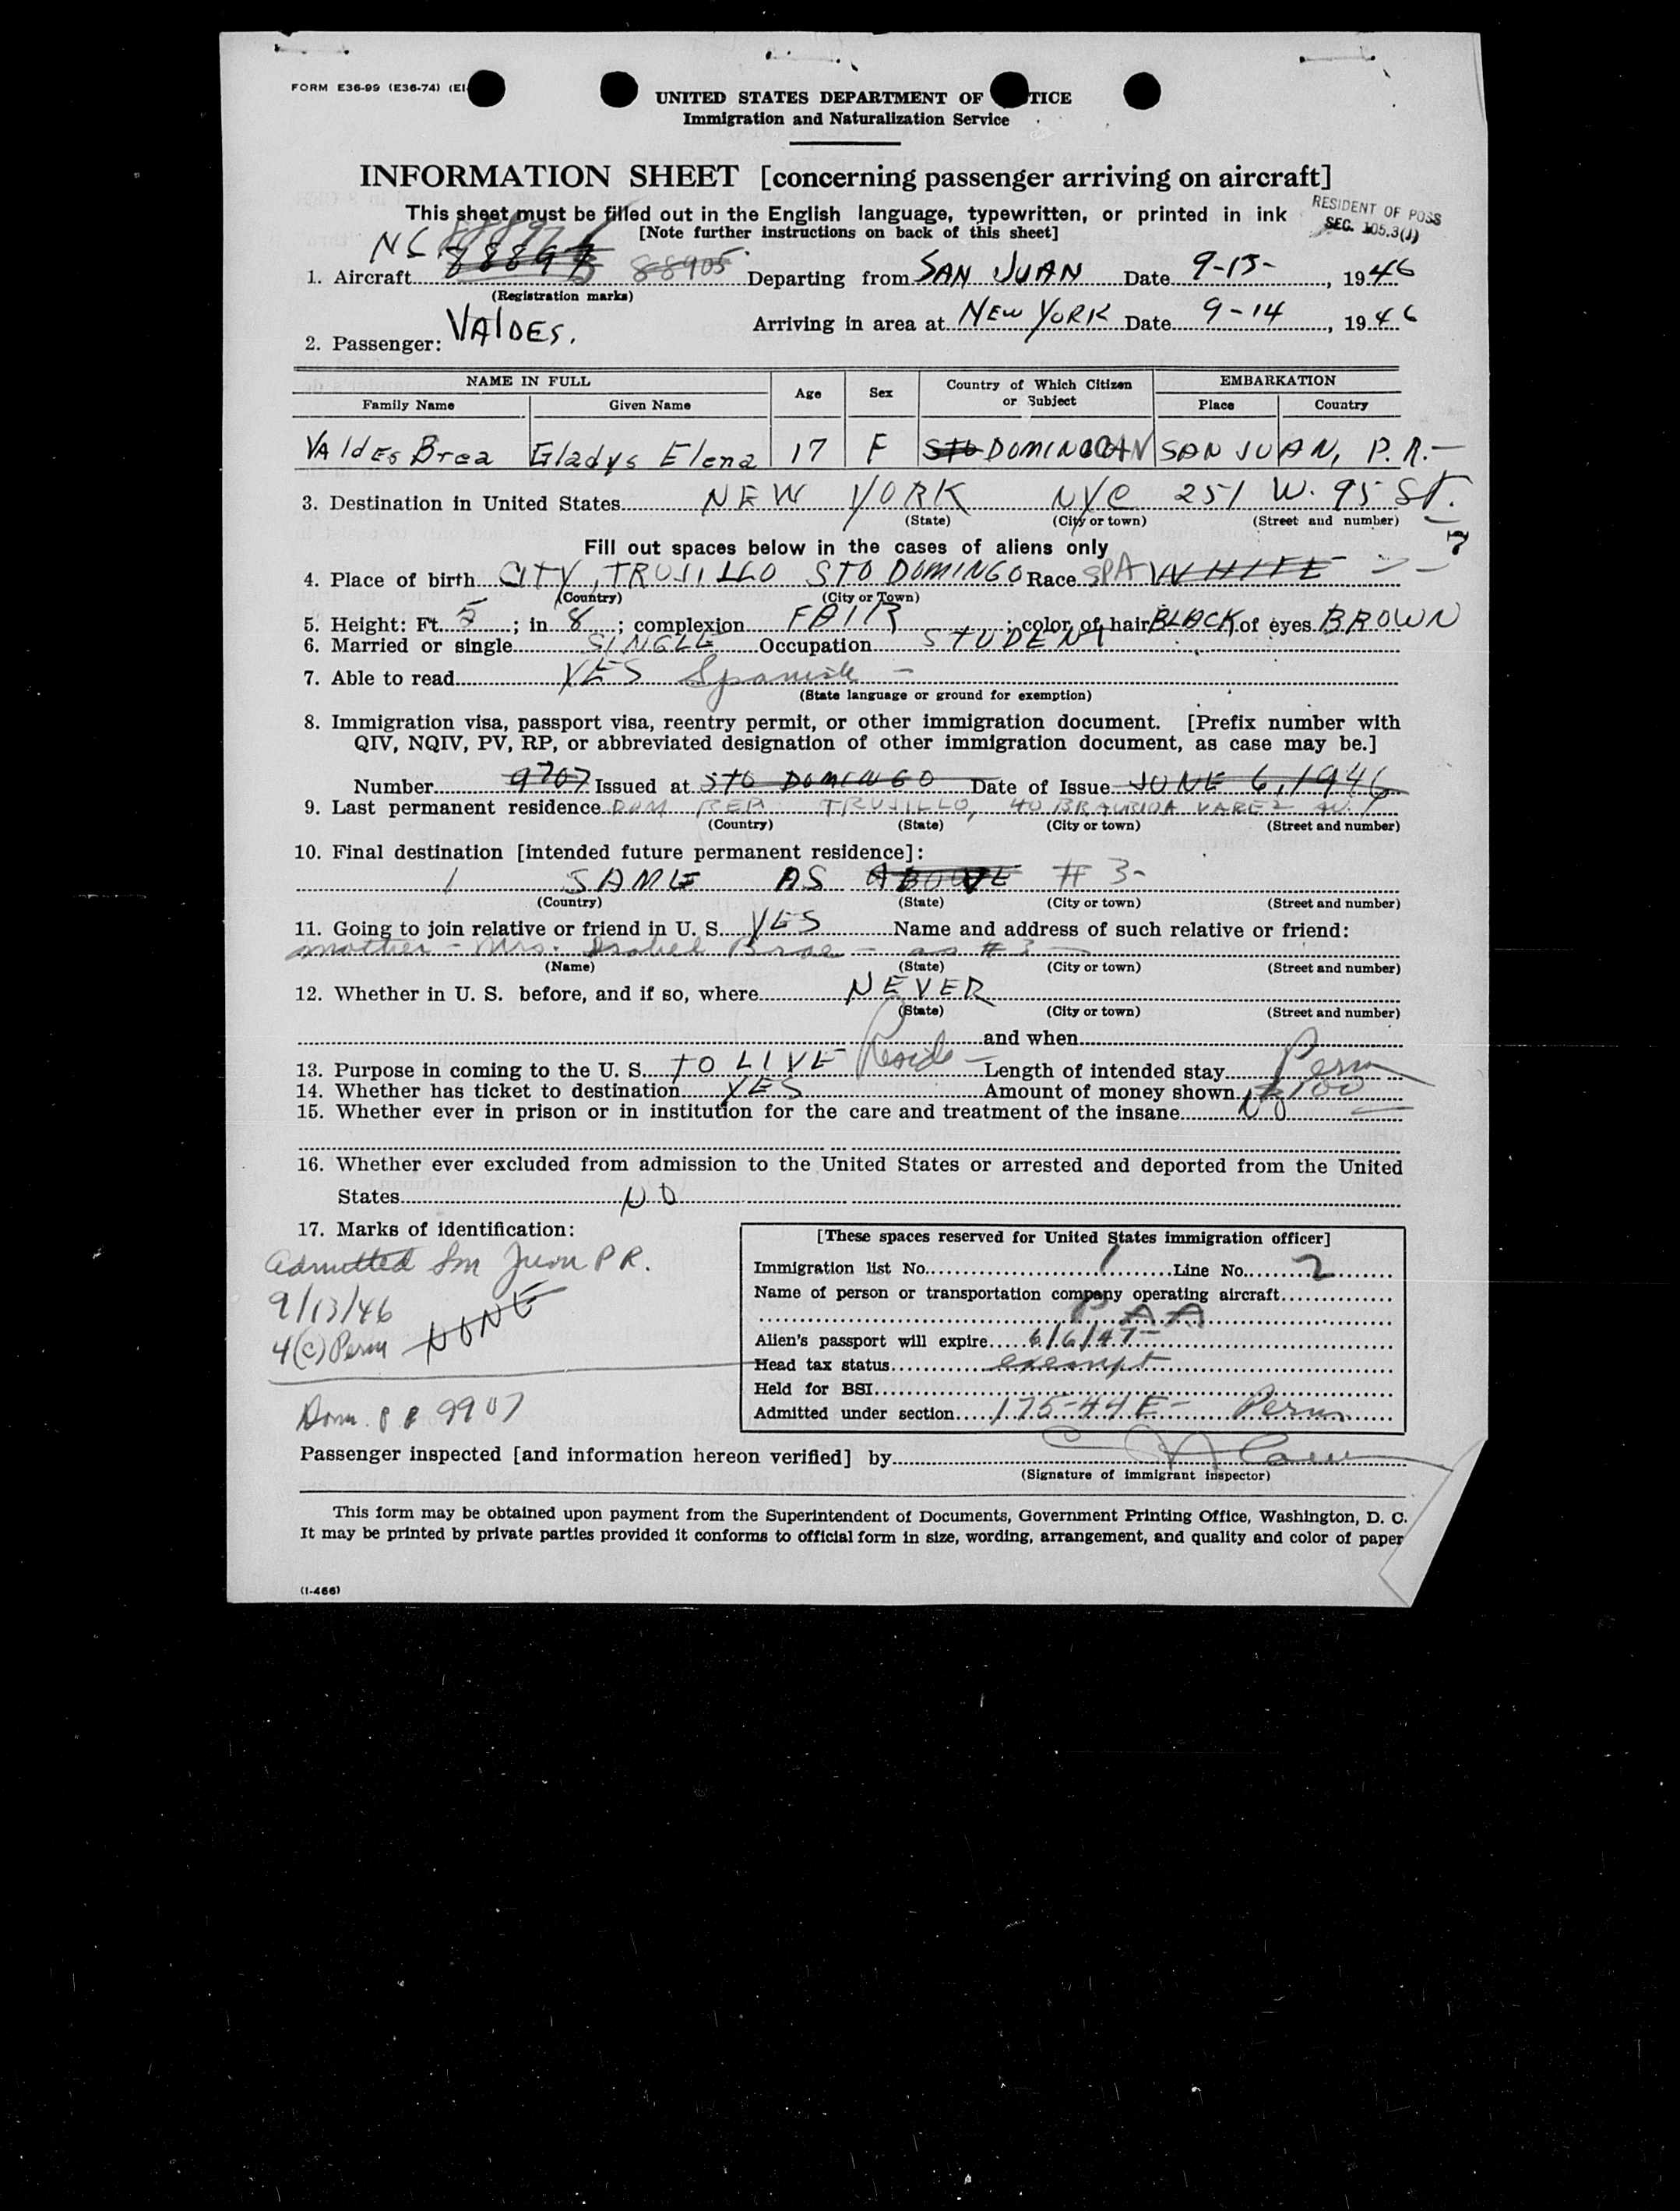 FORM E36-99 (E36-74) (EI-
UNITED STATES DEPARTMENT OF TICE
Immigration and Naturalization Service
INFORMATION SHEET [concerning passenger arriving on aircraft]
This sheet must be filled out in the English language, typewritten, or printed in ink
RESIDENT OF POSS
SEC. 105.3(J)
[Note further instructions on back of this sheet]
1. Aircraft NC 88905 Departing from SAN JUAN Date 9-13-, 1946
(Registration marks)
Arriving in area at NEW YORK Date 9-14, 1946
2. Passenger: VAlDES.
NAME IN FULL Age Sex Country of Which Citizen or Subject EMBARKATION
Family Name Given Name Place Country
VAldEs Brea Gladys Elena 17 F STO DOMINICAN SAN JUAN, P.R.-
3. Destination in United States NEW YORK NYC 251 W. 95 St.
(State) (City or town) (Street and number)
Fill out spaces below in the cases of aliens only
4. Place of birth CITY, TRUJILLO STO DOMINGO Race SPA WHITE
(Country) (City or Town)
5. Height: Ft. 5; in 8; complexion FAIR; color of hair BLACK, of eyes BROWN
6. Married or single SINGLE Occupation STUDENT
7. Able to read YES Spanish -
(State language or ground for exemption)
8. Immigration visa, passport visa, reentry permit, or other immigration document. [Prefix number with
QIV, NQIV, PV, RP, or abbreviated designation of other immigration document, as case may be.]
Number 9707 Issued at STO DOMINGO Date of Issue JUNE 6, 1946
9. Last permanent residence DOM REP TRUJILLO, 40
(Country) (State) (City or town) (Street and number)
10. Final destination [intended future permanent residence]:
SAME AS ABOVE # 3-
(Country) (State) (City or town) (Street and number)
11. Going to join relative or friend in U. S. YES Name and address of such relative or friend:
mother - Mrs. Isabel Brea - as # 3 -
(Name) (State) (City or town) (Street and number)
12. Whether in U. S. before, and if so, where NEVER
(State) (City or town) (Street and number)
and when
13. Purpose in coming to the U. S. TO LIVE Reside - Length of intended stay Perm
14. Whether has ticket to destination YES Amount of money shown $100
15. Whether ever in prison or in institution for the care and treatment of the insane NO
16. Whether ever excluded from admission to the United States or arrested and deported from the United
States NO
17. Marks of identification:
Admitted San Juan P R.
9/13/46
4(c) Perm NONE
Dom. P P 9907
[These spaces reserved for United States immigration officer]
Immigration list No. 1 Line No. 2
Name of person or transportation company operating aircraft
P A A
Alien's passport will expire 6/6/47-
Head tax status exempt
Held for BSI
Admitted under section 175-44 E- Perm
Passenger inspected [and information hereon verified] by
(Signature of immigrant inspector)
This form may be obtained upon payment from the Superintendent of Documents, Government Printing Office, Washington, D. C.
It may be printed by private parties provided it conforms to official form in size, wording, arrangement, and quality and color of paper
(I-466)